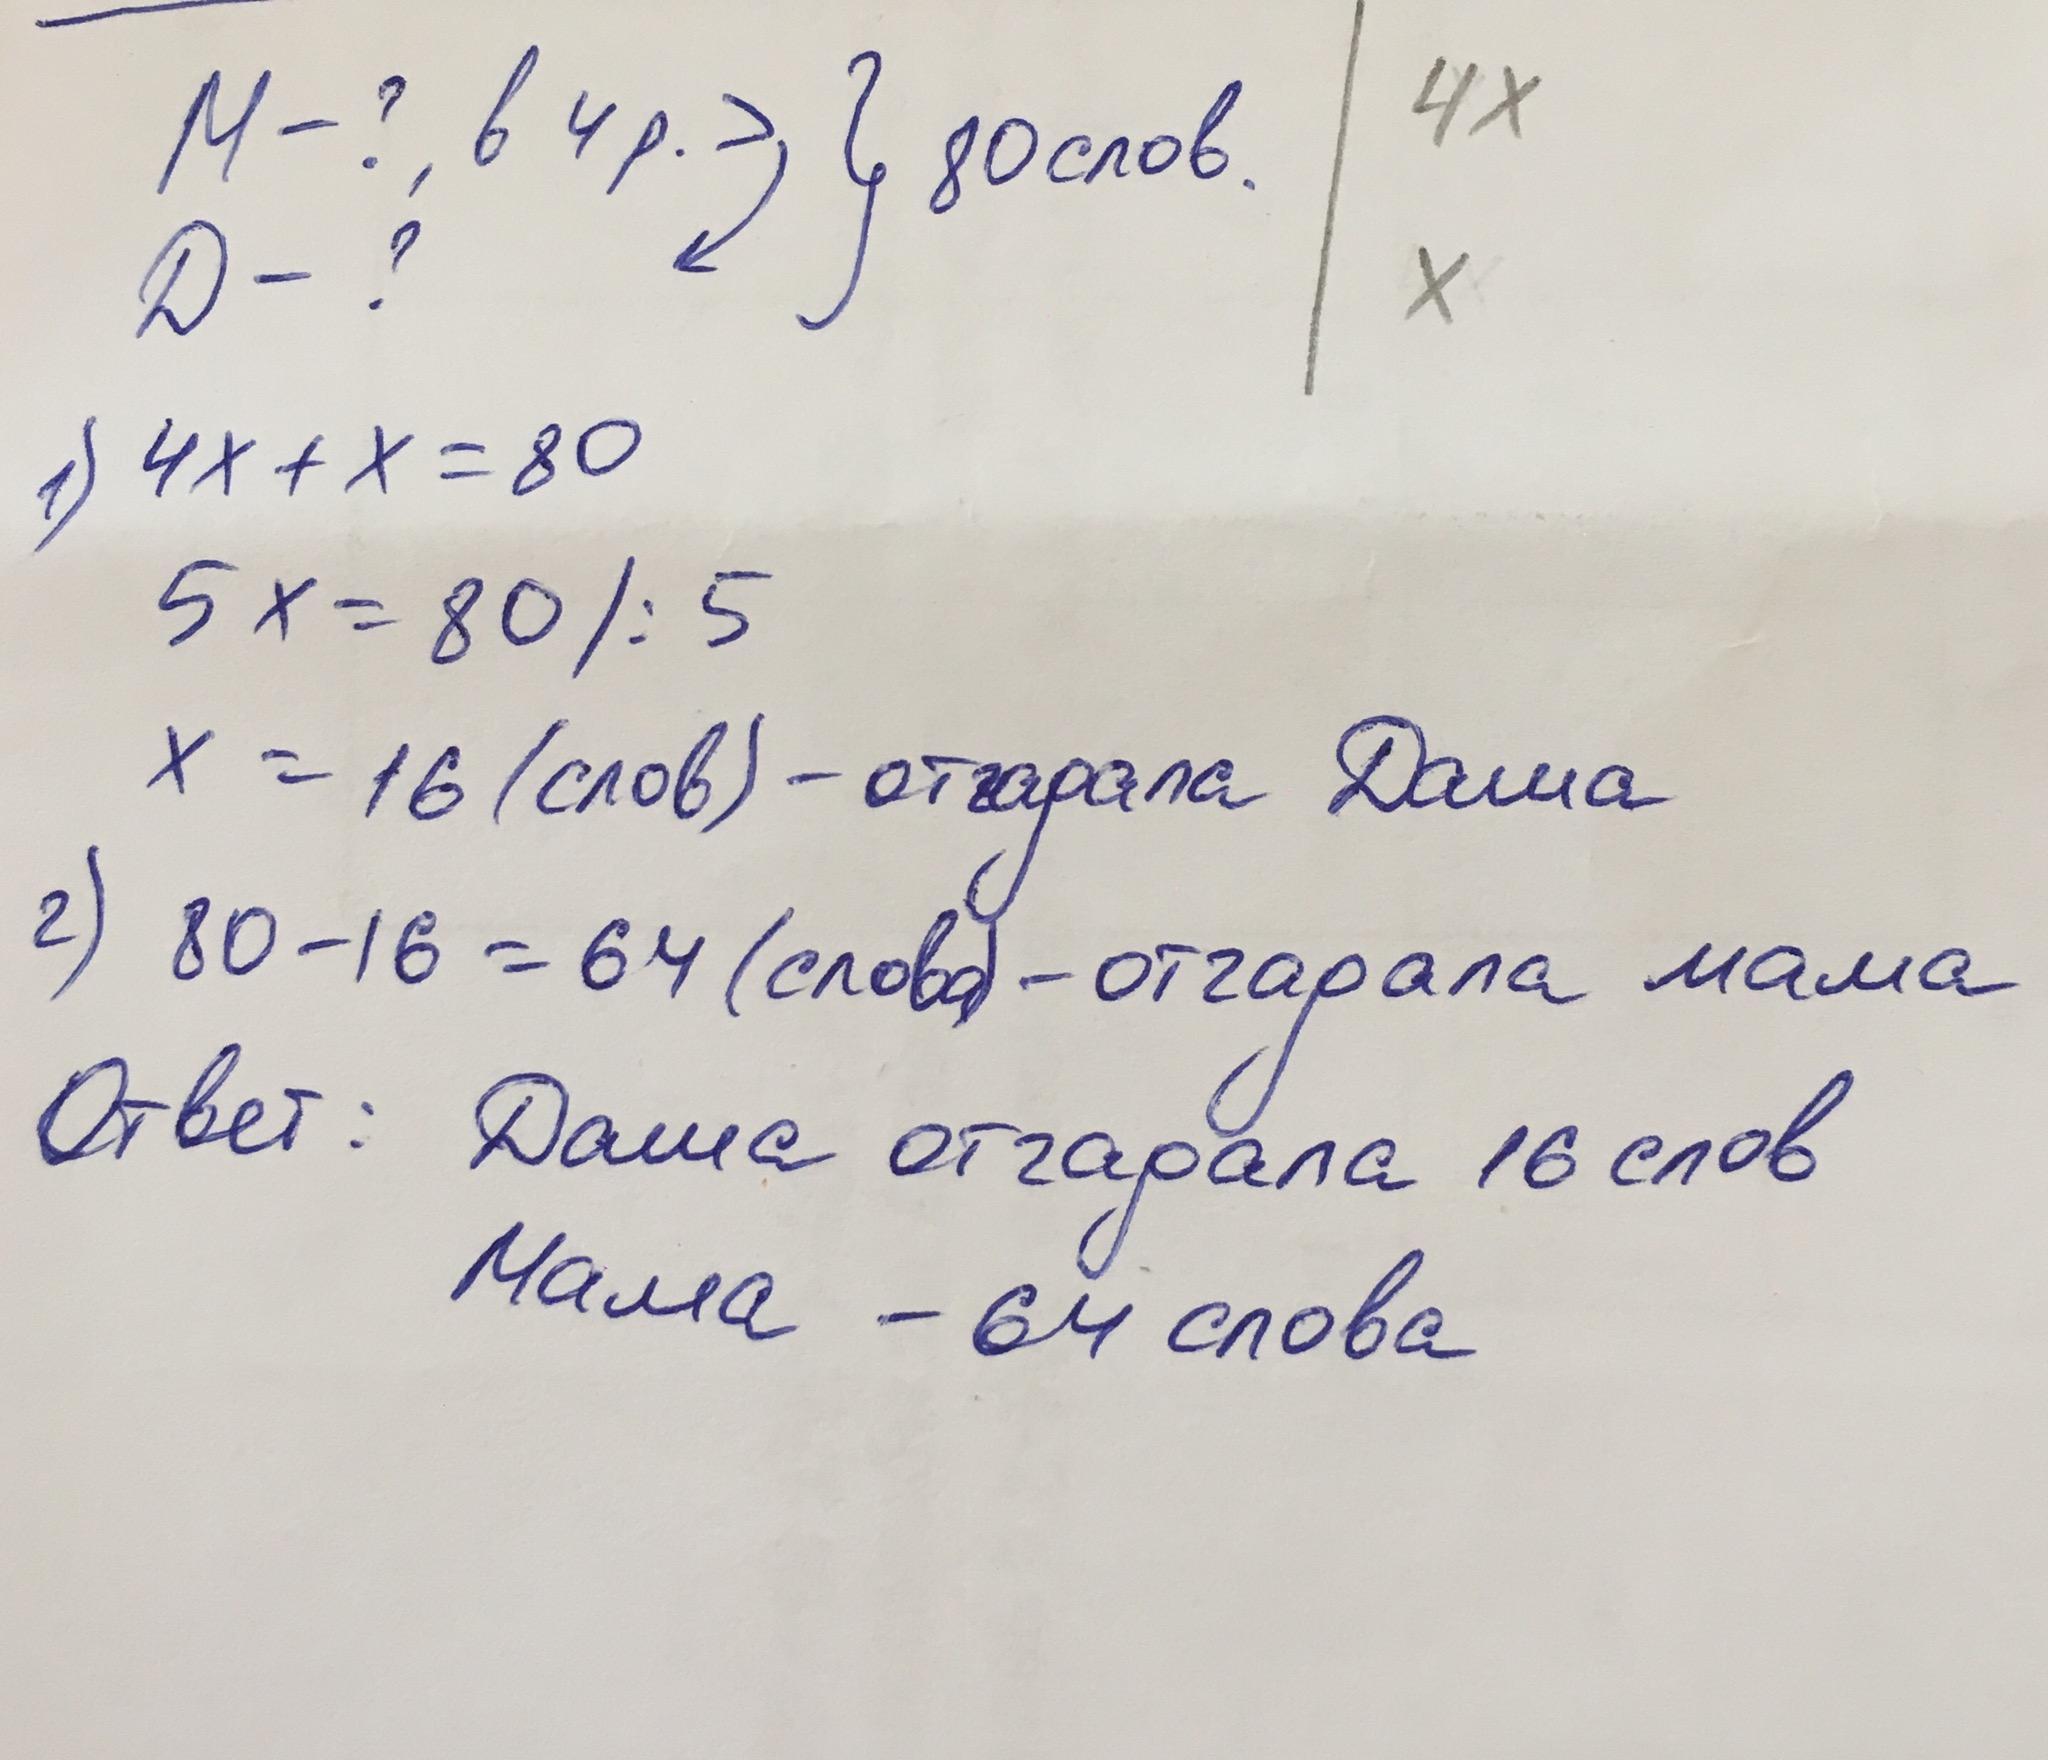 М - ?, в 4 р. > } 80 слов. | 4x
Д - ? x
1) 4x + x = 80
5x = 80 /: 5
x = 16 (слов) - отгадала Даша
2) 80 - 16 = 64 (слова) - отгадала мама
Ответ: Даша отгадала 16 слов
Мама - 64 слова